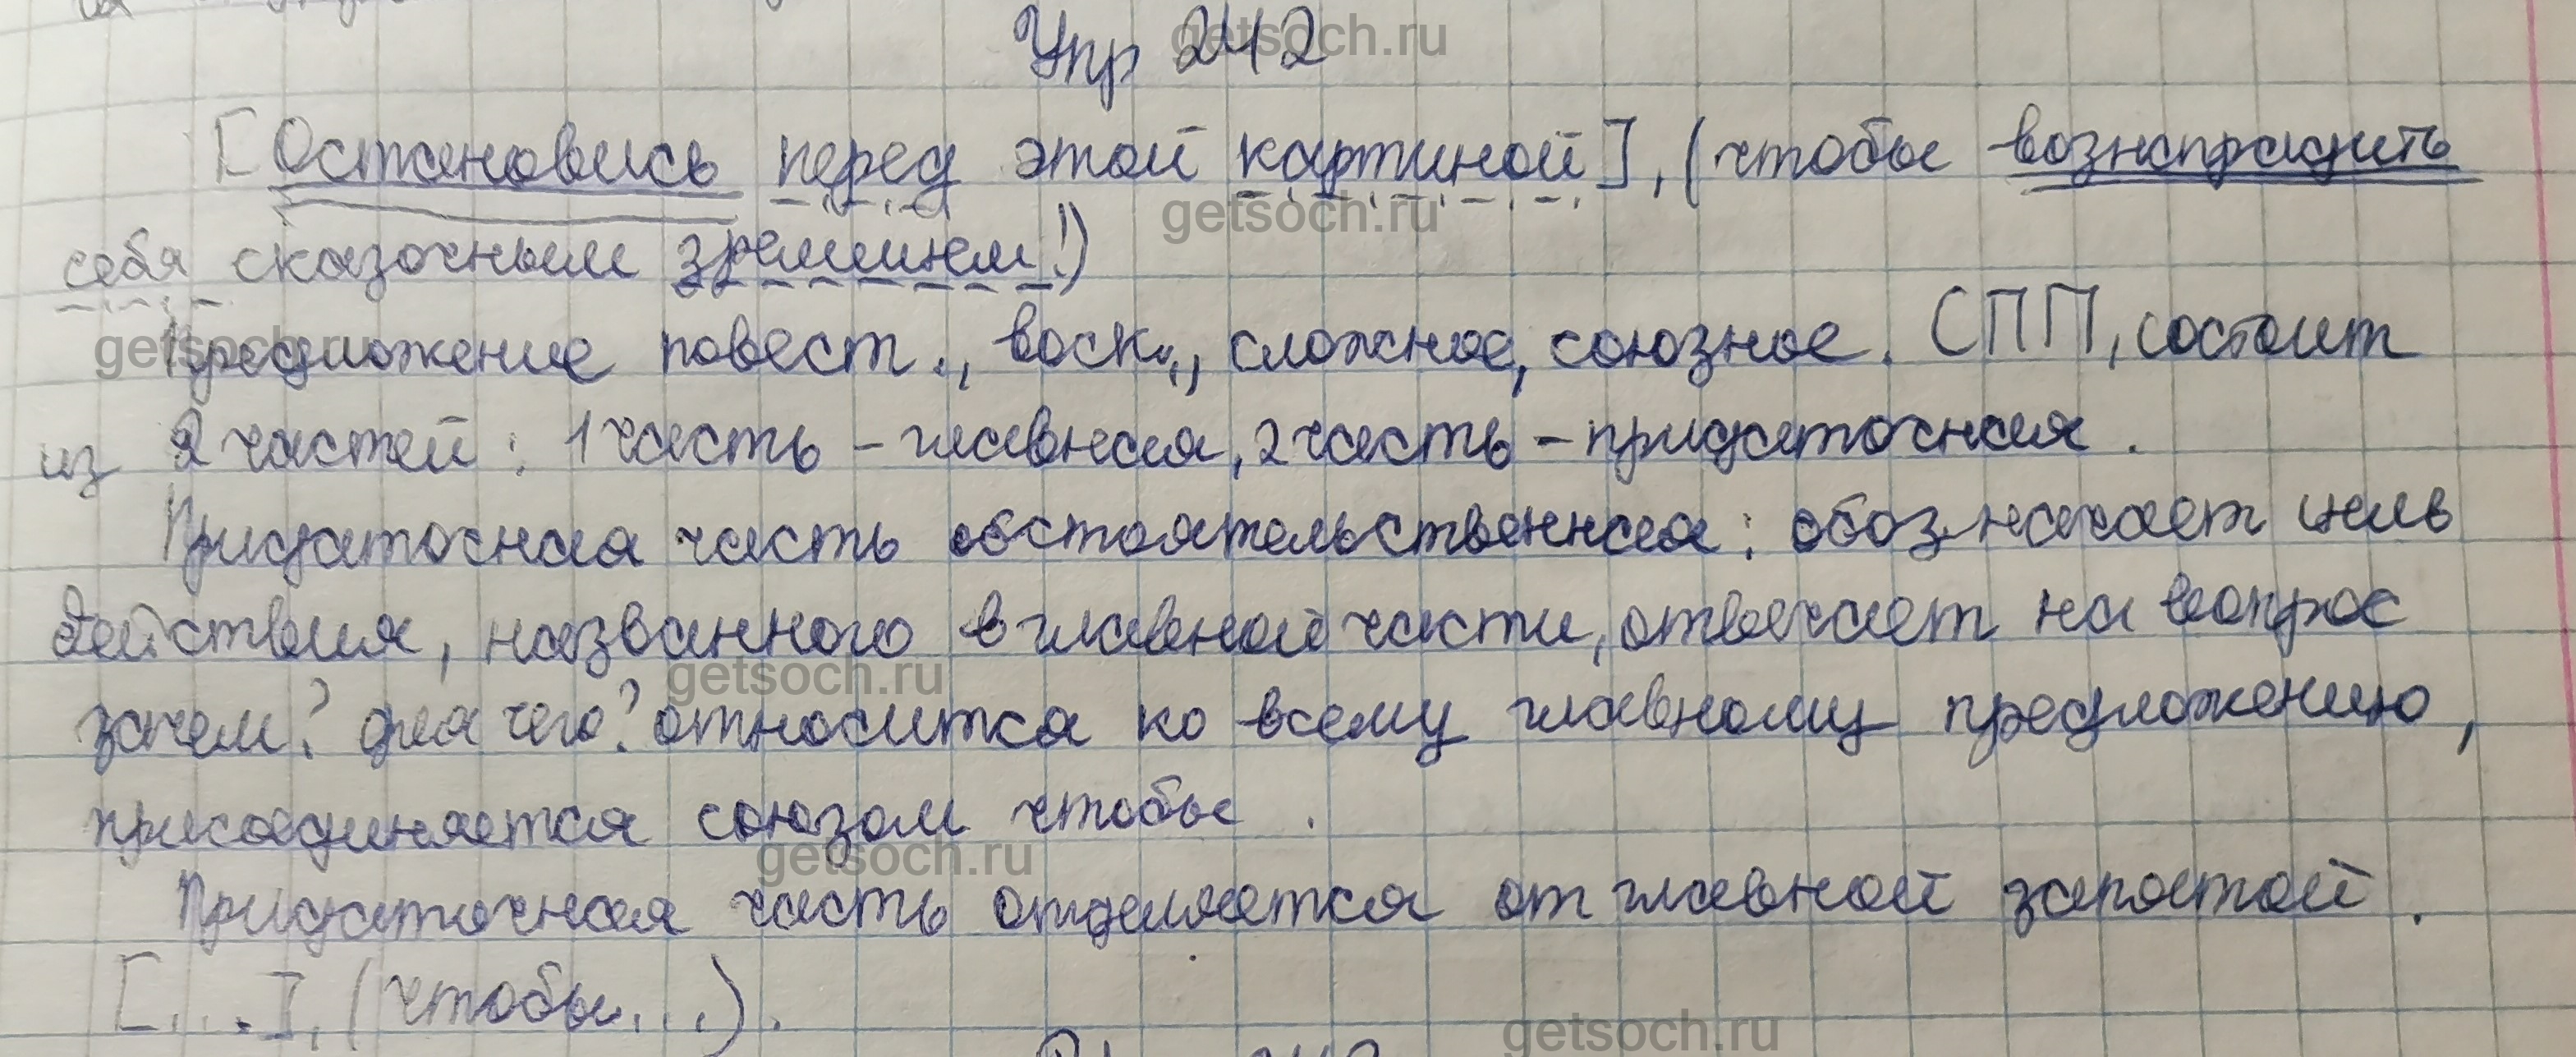 Упр 242
[Остановись перед этой картиной], (чтобы вознаградить
себя сказочным зрелищем!)
Предложение повест., воск., сложное, союзное. СПП, состоит
из 2 частей: 1 часть – главная, 2 часть – придаточная.
Придаточная часть обстоятельственная: обозначает цель
действия, названного в главной части, отвечает на вопрос
зачем? для чего? относится ко всему главному предложению,
присоединяется союзом чтобы.
Придаточная часть отделяется от главной запятой.
[...], (чтобы...).
getsoch.ru
getsoch.ru
getsoch.ru
getsoch.ru
getsoch.ru
getsoch.ru